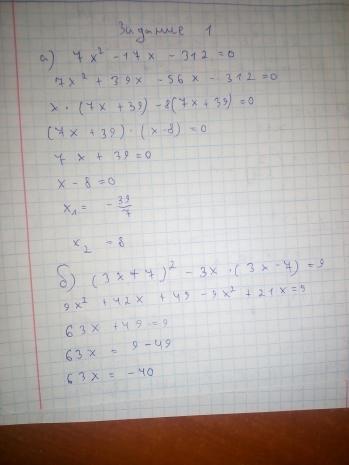 Задание 1
а) 7x² - 17x - 312 = 0
7x² + 39x - 56x - 312 = 0
x · (7x + 39) - 8(7x + 39) = 0
(7x + 39) · (x - 8) = 0
7x + 39 = 0
x - 8 = 0
x₁ = - 39/7
x₂ = 8
б) (3x + 7)² - 3x · (3x - 7) = 9
9x² + 42x + 49 - 9x² + 21x = 9
63x + 49 = 9
63x = 9 - 49
63x = -40